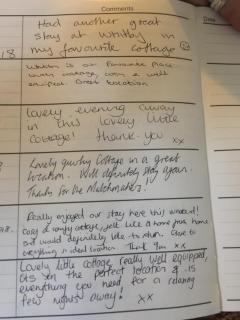 Comments
Date
Had another great
stay at Whitby in
my favourite cottage
18
Whitby is our favourite place
cottage, cosy & well
equiped. Great location
Lovely evening away
in this lovely little
Cottage! Thank-you
xx
Lovely quirky Cottage in a great
location. Will definitely stay again.
Thanks for the Matchmakers!
Really enjoyed our stay here this weekend!
Cosy & comfy cottage, felt like a home from home
and would definitely like to return. Close to
everything & ideal location. Thank You xx
Lovely little cottage really well equipped,
its in the perfect location & is
everything you need for a relaxing
few nights away! xx